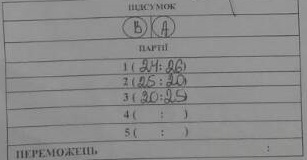 ПІДСУМОК
В А
ПАРТІЇ
1 ( 24 : 26 )
2 ( 25 : 20 )
3 ( 20 : 25 )
4 ( : )
5 ( : )
ПЕРЕМОЖЕЦЬ :